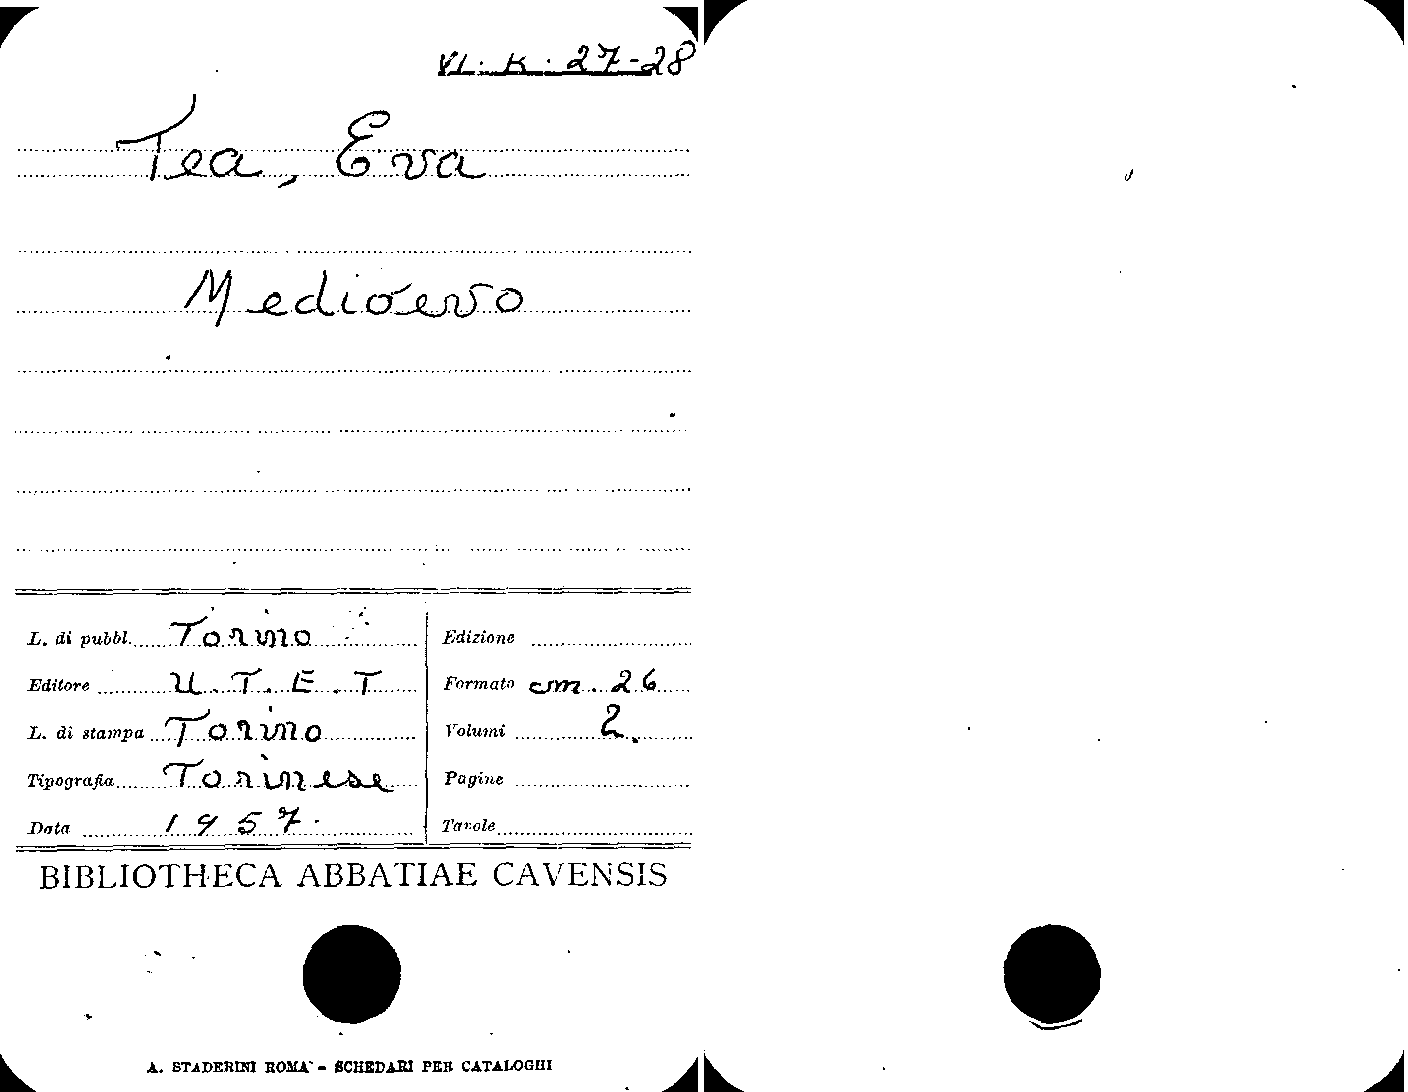 VI. K. 27-28
Tea, Eva
Medioevo
L. di pubbl. Torino
Editore U.T.E.T
L. di stampa Torino
Tipografia Torinese
Data 1957.
Edizione
Formato cm. 26
Volumi 2.
Pagine
Tavole
BIBLIOTHECA ABBATIAE CAVENSIS
A. STADERINI ROMA - SCHEDARI PER CATALOGHI